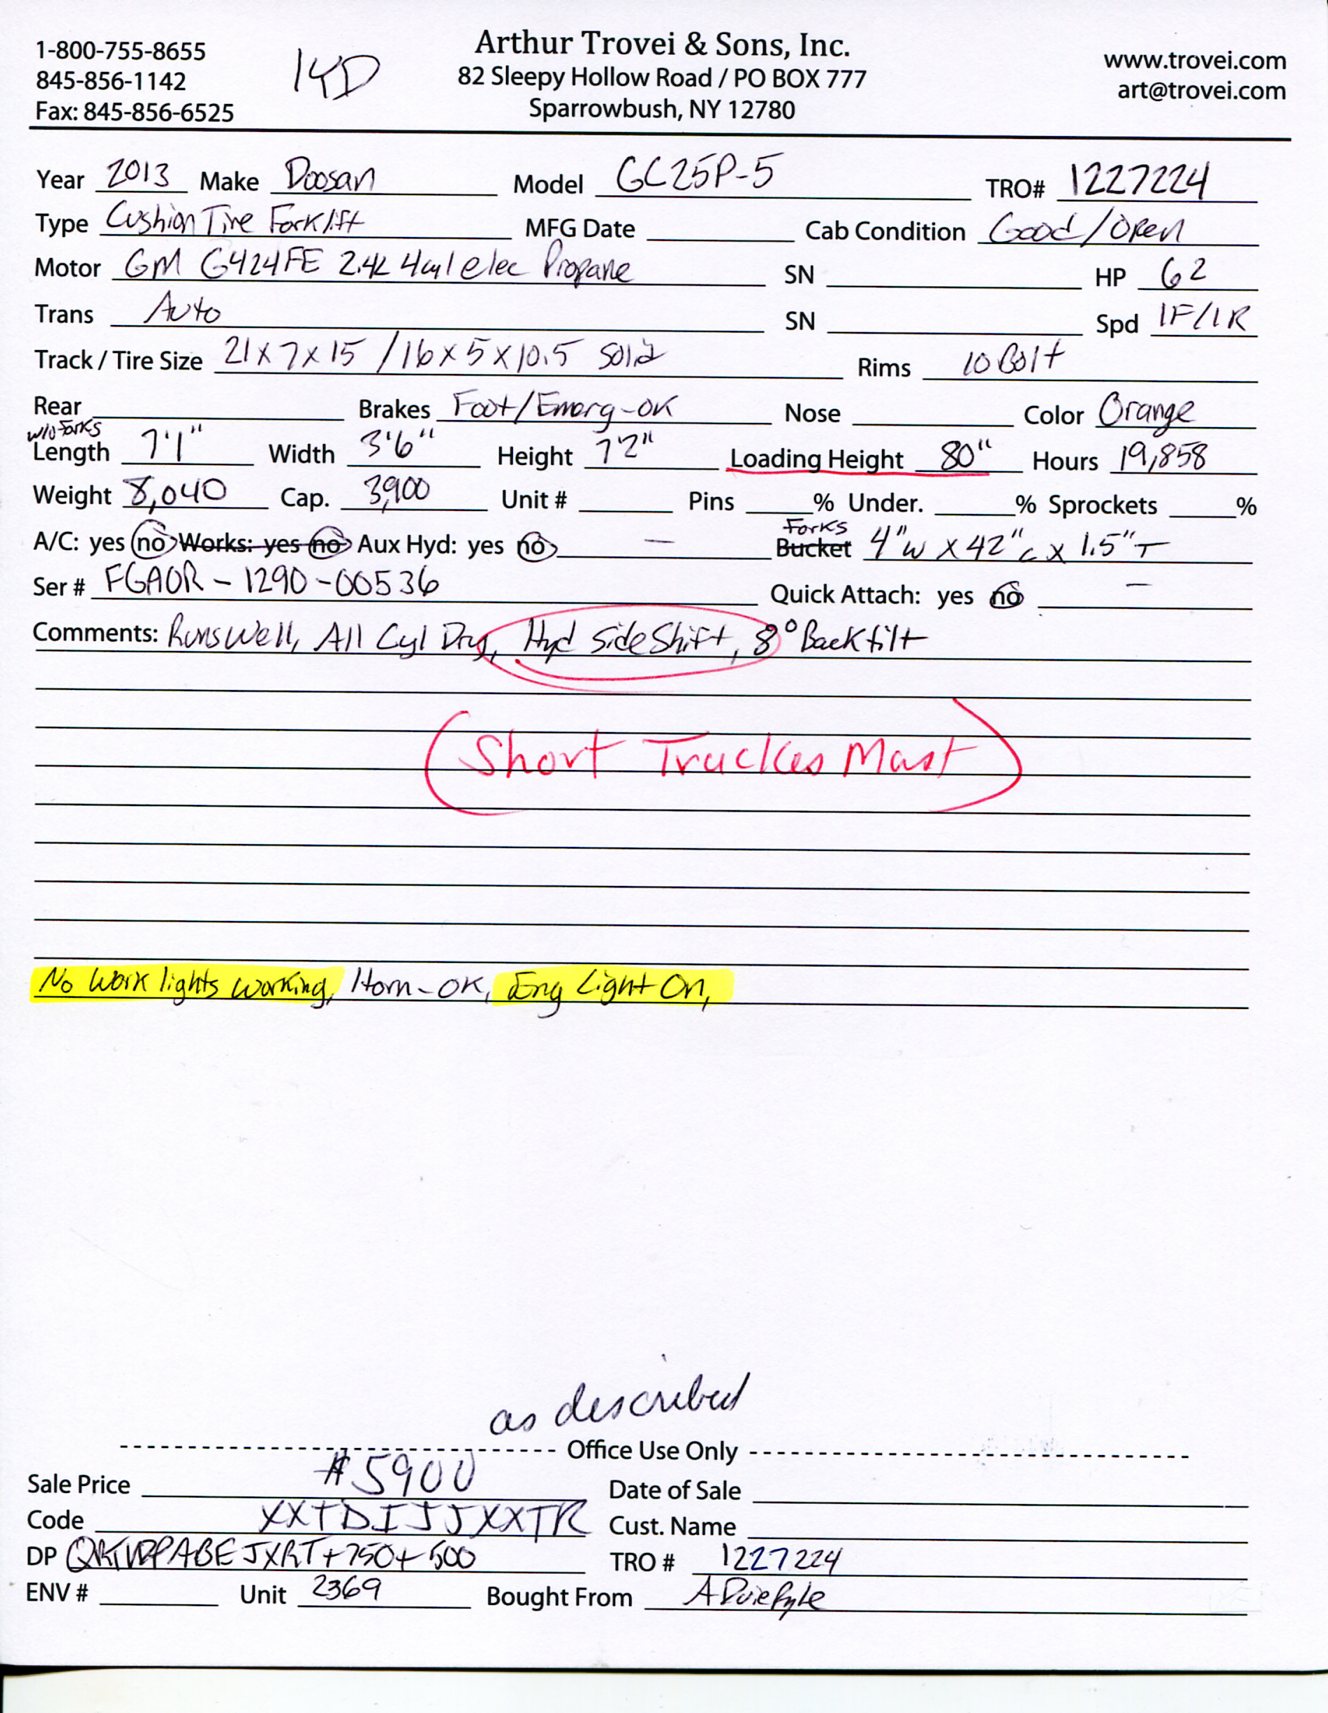 1-800-755-8655
845-856-1142
Fax: 845-856-6525
Arthur Trovei & Sons, Inc.
82 Sleepy Hollow Road / PO BOX 777
Sparrowbush, NY 12780
www.trovei.com
art@trovei.com
Year 2013 Make Doosan Model GC25P-5 TRO# 1227224
Type Cushion Tire Forklift MFG Date Cab Condition Good/Open
Motor GM G424FE 2.4L 4cyl elec Propane SN HP 62
Trans Auto SN Spd 1F/1R
Track / Tire Size 21x7x15 / 16x5x10.5 Solid Rims 10 Bolt
Rear Brakes Foot/Emerg-OK Nose Color Orange
w/o Forks
Length 7'1" Width 3'6" Height 7'2" Loading Height 80" Hours 19,858
Weight 8,040 Cap. 3,900 Unit # Pins % Under. % Sprockets %
Forks
A/C: yes no Works: yes no Aux Hyd: yes no — Bucket 4"W x 42"L x 1.5"T
Ser # FGA0R-1290-00536 Quick Attach: yes no —
Comments: Runs Well, All Cyl Dry, Hyd Side Shift, 8° Back tilt
(Short Truckes Mast)
No Work lights working, Horn-OK, Eng Light On,
as described
Office Use Only
Sale Price $5900 Date of Sale
Code XXTDIJJXXTR Cust. Name
DP +750+500 TRO # 1227224
ENV # Unit 2369 Bought From